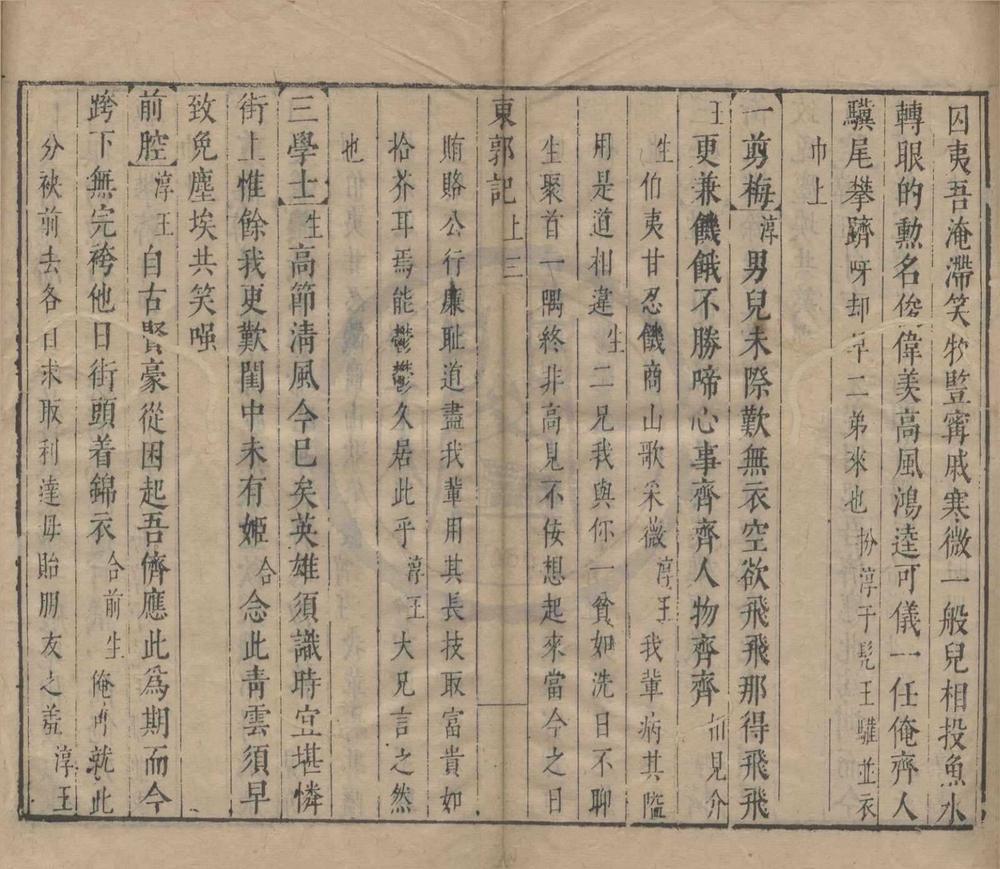 囚夷吾淹滯笑牧豎甯戚寒微一般兒相投魚水
轉眼的勲名俊偉美高風鴻逵可儀一任俺齊人
驥尾攀躋呀却早二弟來也扮淳于髠王驩並衣
巾上
一剪梅淳男兒未際歎無衣空欲飛飛那得飛飛
王更兼饑餓不勝啼心事齊齊人物齊齊相見介
生伯夷甘忍饑商山歌采薇淳王我輩病其隘
用是道相違生二兄我與你一貧如洗日不聊
生聚首一隅終非高見不佞想起來當今之日
東郭記上三
賄賂公行廉耻道盡我輩用其長技取富貴如
拾芥耳焉能鬱鬱久居此乎淳王大兄言之然
也
三學士生高節淸風今已矣英雄須識時宜堪憐
街上惟餘我更歎閨中未有姬合念此靑雲須早
致免塵埃共笑嗤
前腔淳王自古賢豪從困起吾儕應此爲期而今
跨下無完袴他日街頭着錦衣合前生俺再就此
分袂前去各自求取利達毋貽朋友之羞淳王